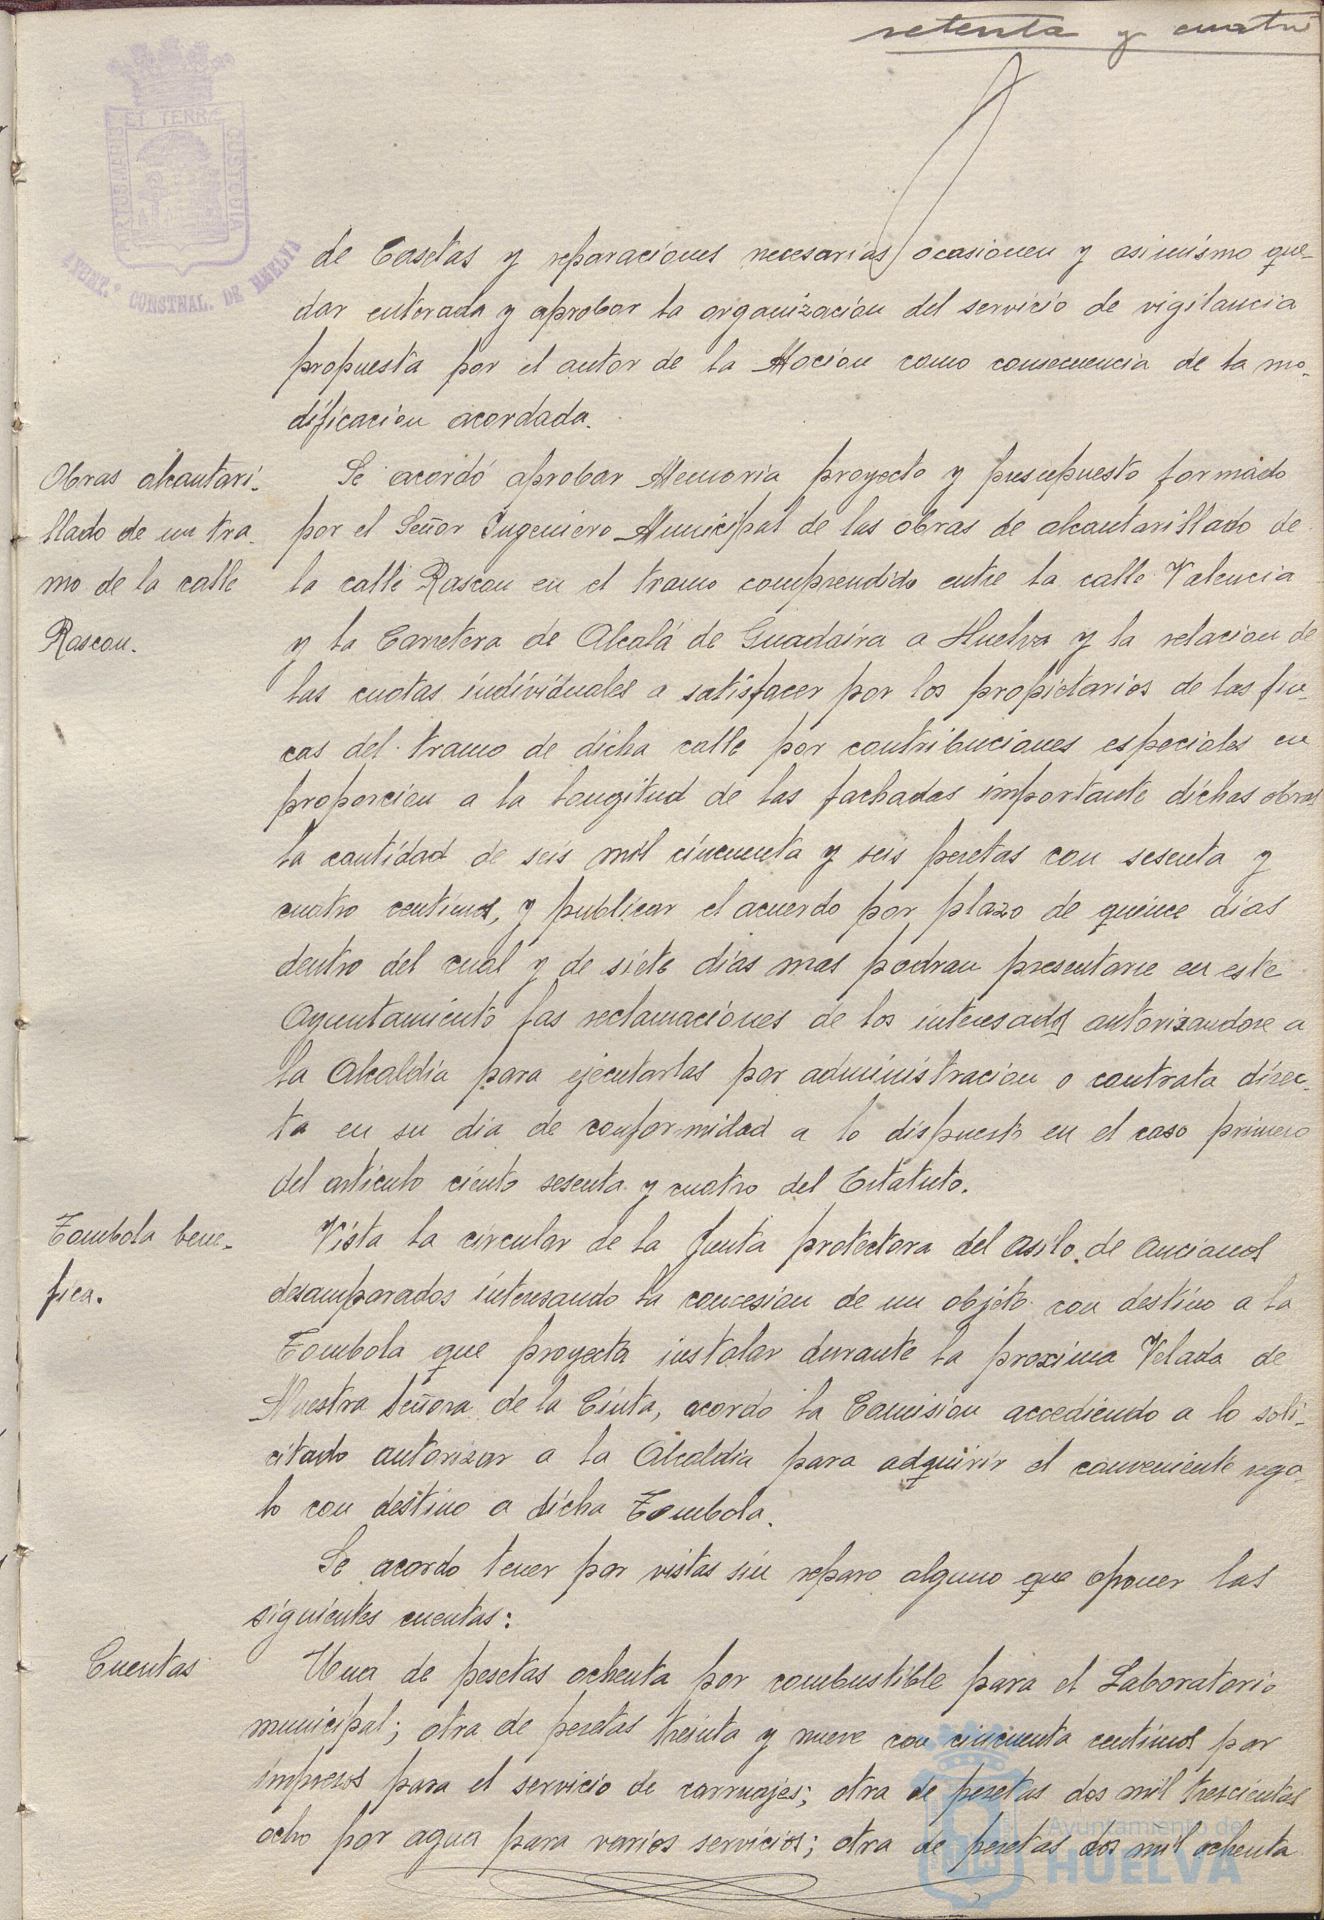 setenta y cuatro
PORTUS MARIS ET TERRAE CUSTODIA
AYUNT.º CONSTNAL. DE HUELVA
de Casetas y reparaciones necesarias ocasionen y asimismo que-
dar enterada y aprobar la organización del servicio de vigilancia
propuesta por el autor de la Moción como consecuencia de la mo-
dificacion acordada.
Obras alcantari-
llado de un tra-
mo de la calle
Rascon.
Se acordó aprobar Memoria proyecto y presupuesto formado
por el Señor Ingeniero Municipal de las obras de alcantarillado de
la calle Rascon en el tramo comprendido entre la calle Valencia
y la Carretera de Alcalá de Guadaira a Huelva y la relacion de
las cuotas individuales a satisfacer por los propietarios de las fin-
cas del tramo de dicha calle por contribuciones especiales en
proporcion a la longitud de las fachadas importante dichas obras
la cantidad de seis mil cincuenta y seis pesetas con sesenta y
cuatro centimos, y publicar el acuerdo por plazo de quince dias
dentro del cual y de siete dias mas podran presentarse en este
Ayuntamiento las reclamaciones de los interesados autorizandose a
la Alcaldia para ejecutarlas por administracion o contrata direc-
ta en su dia de conformidad a lo dispuesto en el caso primero
del articulo ciento sesenta y cuatro del Estatuto.
Tombola bene-
fica.
Vista la circular de la Junta protectora del asilo de Ancianos
desamparados interesando la concesion de un objeto con destino a la
Tombola que proyecta instalar durante la proxima Velada de
Nuestra Señora de la Cinta, acordo la Comision accediendo a lo soli-
citado autorizar a la Alcaldia para adquirir el conveniente rega-
lo con destino a dicha Tombola.
Se acordo tener por vistas sin reparo alguno que oponer las
siguientes cuentas:
Cuentas
Una de pesetas ochenta por combustible para el Laboratorio
municipal; otra de pesetas treinta y nueve con cincuenta centimos por
impresos para el servicio de carruajes; otra de pesetas dos mil trescientas
ocho por agua para varios servicios; otra de pesetas dos mil ochenta
Ayuntamiento de
HUELVA